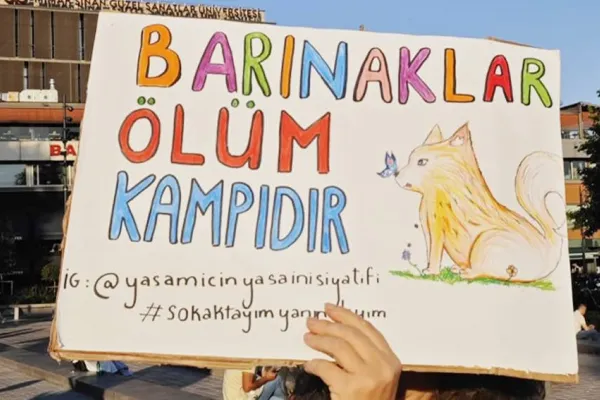 GÜZEL SANATLAR ÜNİVERSİTESİ
BARINAKLAR
ÖLÜM
KAMPIDIR
IG: @yasamicinyasainisiyatifi
#sokaktayım